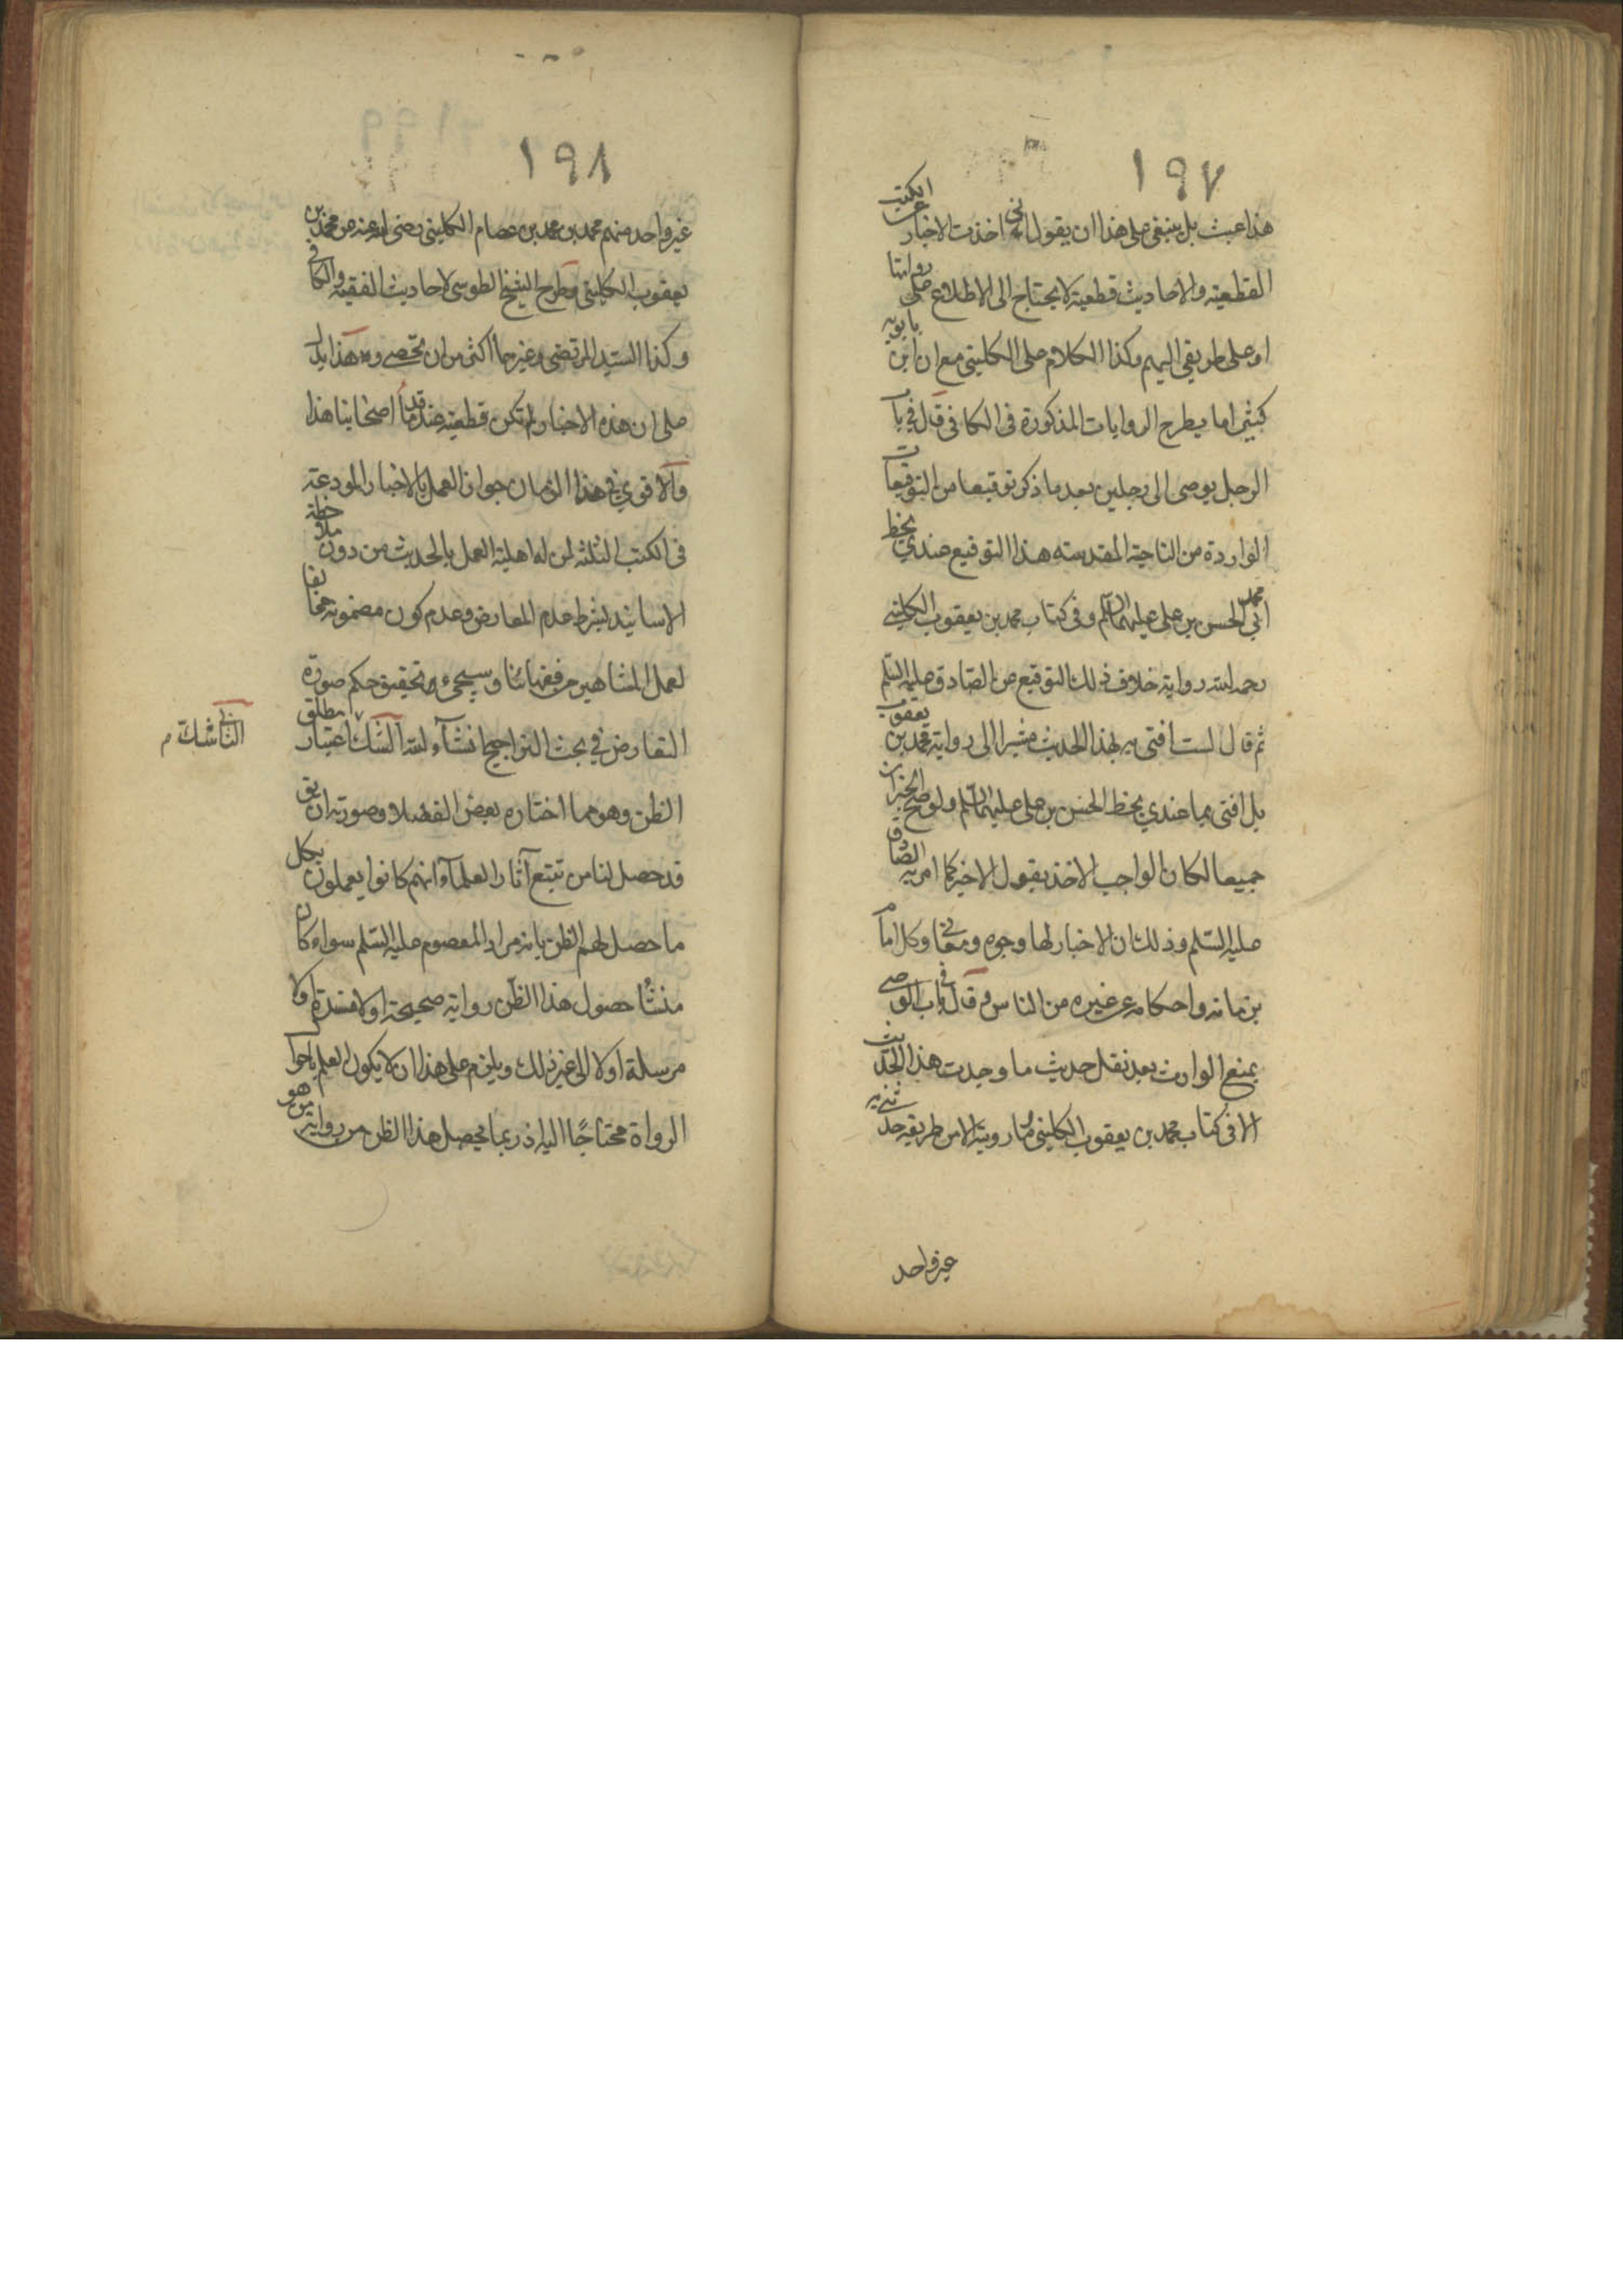 ١٩٧
هذا عبث بل ينبغى على هذا ان يقول انى اخذت الاخبار عن الكتب
القطعية والاحاديث قطعية لا يحتاج الى الاطلاع على رواتها
او على طريقى اليهم وكذا الكلام على الكلينى مع ان ابن بابويه
كثيرا ما يطرح الروايات المذكورة فى الكافى قال فى باب
الرجل يوصى الى رجلين بعد ما ذكر توقيعا من التوقيعات
الواردة من الناحية المقدسة هذا التوقيع عندي بخط
ابي محمد الحسن بن على عليهما السلم وفى كتاب محمد بن يعقوب الكلينى
رحمه الله رواية خلاف ذلك التوقيع عن الصادق عليه السلم
ثم قال لست افتى به بهذا الحديث مشيرا الى رواية محمد بن يعقوب
بل افتى بما عندي بخط الحسن بن على عليهما السلم ولو صح الخبران
جميعا لكان الواجب الاخذ بقول الاخير كما امر به الصادق
عليه السلم وذلك ان الاخبار لها وجوه ومعانى وكل امام
بزمانه واحكامه من غيره من الناس وقال فى باب الوصى
يمنع الوارث بعد نقل حديث ما وجدت هذا الحديث
الا فى كتاب محمد بن يعقوب الكلينى وما رويته الا من طريقه حدثنى به
غير واحد
١٩٨
غير واحد منهم محمد بن محمد بن عصام الكلينى رضى الله عنه عن محمد بن
يعقوب الكلينى وطرح الشيخ الطوسى لاحاديث الفقيه والكافى
وكذا السيد المرتضى وغيرهما اكثر من ان تحصى وهذا يدل
على ان هذه الاخبار لم تكن قطعية عند قدماء اصحابنا هذا
والاقوي فى هذا الزمان جواز العمل بالاخبار المودعة
فى الكتب الثلثة لمن له اهلية العمل بالحديث من دون ملاحظة
الاسانيد بشرط عدم المعارض وعدم كون مضمونه مخالفا
لعمل المشاهير من فقهائنا وسيجىء تحقيق حكم صورة
التعارض فى بحث التراجيح انشاء الله الشك اعتبار مطلق
الظن وهو مما اختاره بعض الفضلاء وصورته ان يق
قد حصل لنا من تتبع آثار العلماء انهم كانوا يعملون بكل
ما حصل لهم الظن بانه مراد المعصوم عليه السلم سواء كان
منشأ حصول هذا الظن رواية صحيحة اولا مسندة اولا
مرسلة اولا الى غير ذلك ويلزم على هذا ان لا يكون العلم باحوال
الرواة محتاجًا اليه اذ ربما يحصل هذا الظن من رواية من هو